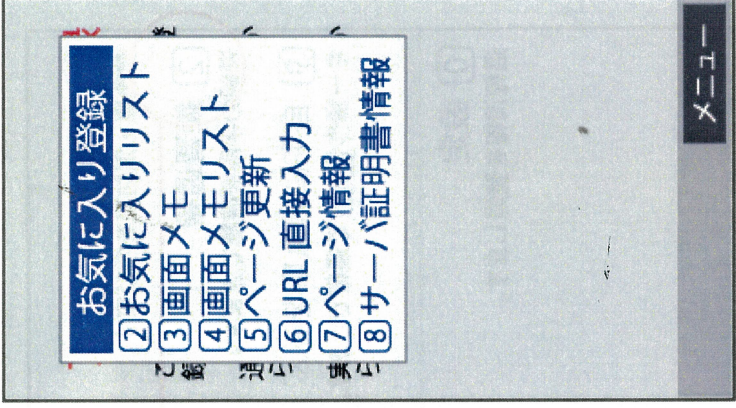 お気に入り登録
2お気に入りリスト
3画面メモ
4画面メモリスト
5ページ更新
6URL 直接入力
7ページ情報
8サーバ証明書情報
メニュー